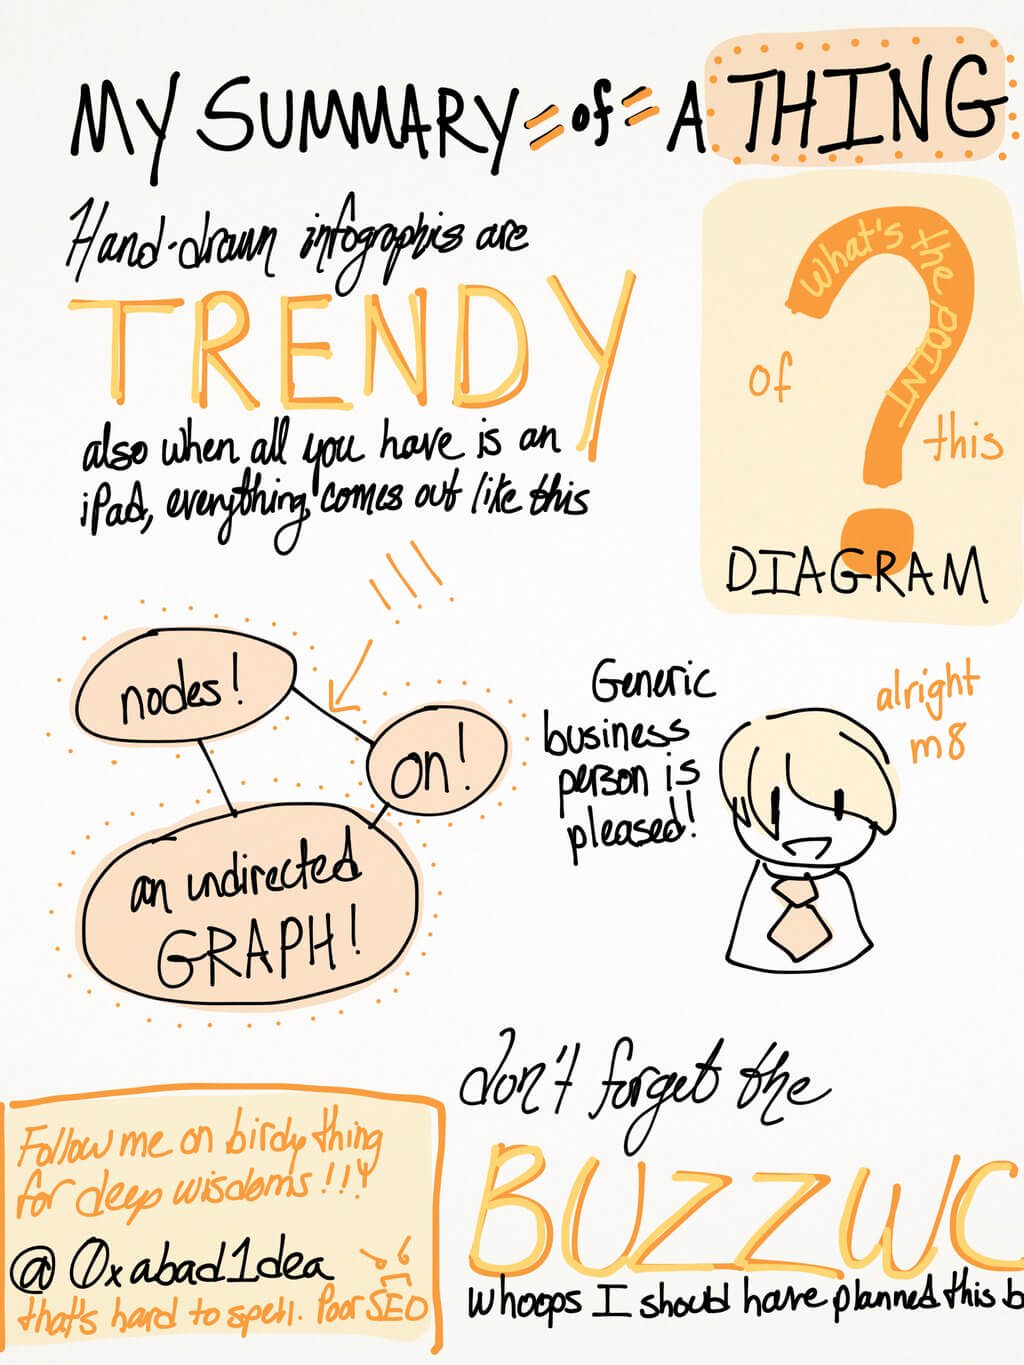 MY SUMMARY = of = A THING
Hand-drawn infographis are
TRENDY
also when all you have is an
iPad, everything comes out like this
What's the POINT
of
this
DIAGRAM
!!!
nodes!
on!
an undirected
GRAPH!
Generic
business
person is
pleased!
alright
m8
don't forget the
BUZZWO
whoops I should have planned this b
Follow me on birdy thing
for deep wisdoms!!!
@0xabad1dea
that's hard to spell. Poor SEO